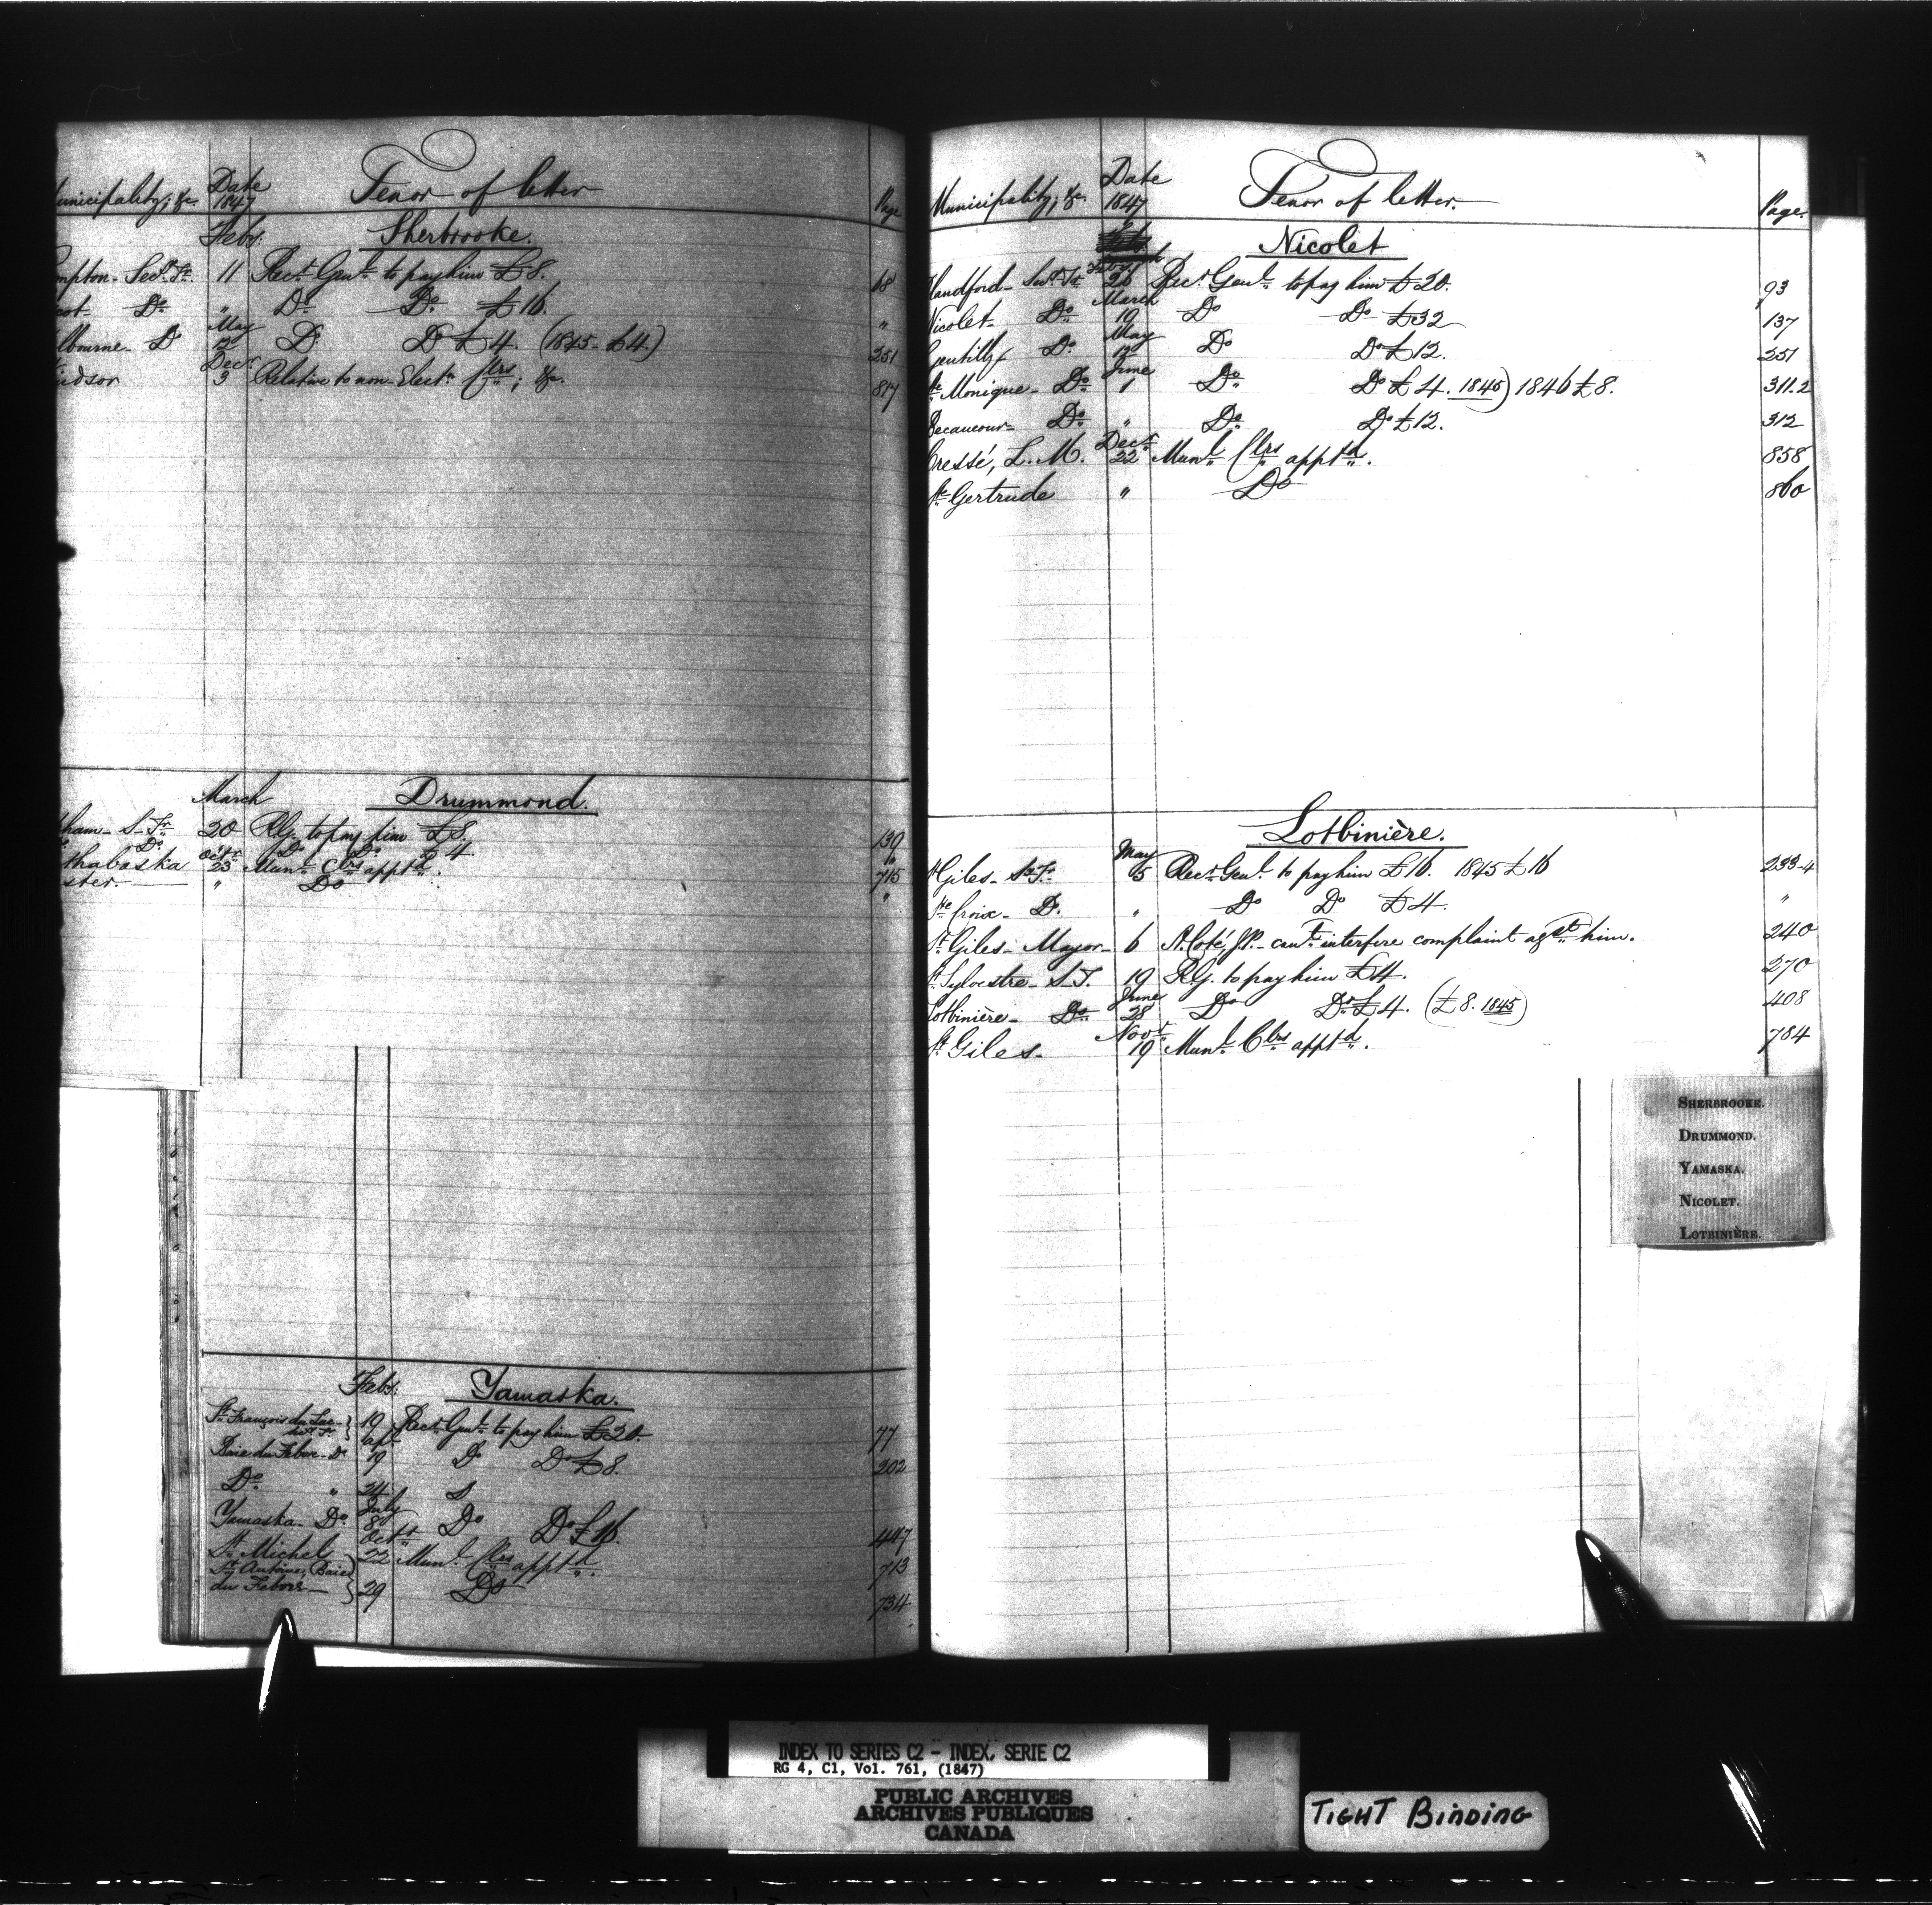 unicipality, &c. Date 1847 Tenor of letter Page
Feby. Sherbrooke.
mpton - Secy. Tr. 11 Recr. Genl. to pay him £8. 68
cot - Do. " Do. Do. £16. "
lbourne - Do May 12 Do. Do £4. (1845 - £4) 251
indsor Decr. 3 Relative to non-Electn. Clrs; &c. 817
March Drummond.
ham - S. Tr. 20 R.G. to pay him £8. 139
Do. Do. Do. £4 "
thabaska Octr. 23 Munl. Clrs apptd. 715
ster. " Do "
Feby. Yamaska.
St. François du Lac - Secy. Tr. } 19 Recr. Genl. to pay him £20. 77
Baie du Febvre - Do. Apl. 19 Do Do £8. 202
Do. " 24
Yamaska - Do. July 8 Do Do £16. 447
St. Michel Octr. 22 Munl. Clrs apptd. 713
St. Antoine, Baie
du Febvre } 29 Do 734
Municipality, &c. Date 1847 Tenor of letter. Page.
Nicolet
Feby. 26 Recr. Genl. to pay him £20. 93
Nicolet - Do. March 19 Do Do £32 137
Gentilly - Do. May 12 Do Do £12. 251
Ste. Monique - Do June 1 Do. Do £4. 1845) 1846 £8. 311.2
Becancour - Do. " Do. Do £12. 312
Cressé, L. M. Decr. 22 Munl. Clrs apptd. 858
Ste. Gertrude " Do 860
Lotbinière.
St Giles - S. Tr. May 5 Recr. Genl. to pay him £16. 1845 £16 233-4
Ste Croix - Do. " Do Do £4. "
St. Giles - Mayor - 6 A. Coté, J.P. - can't interfere complaint agst. him. 240
St Sylvestre - S. T. 19 R.G. to pay him £4. 270
Lotbinière - Do. June 28 Do Do £4. (£8. 1845) 408
St. Giles - Novr. 19 Munl. Clrs apptd. 784
SHERBROOKE.
DRUMMOND.
YAMASKA.
NICOLET.
LOTBINIÈRE.
INDEX TO SERIES C2 - INDEX, SERIE C2
RG 4, C1, Vol. 761, (1847)
PUBLIC ARCHIVES
ARCHIVES PUBLIQUES
CANADA
TIGHT BINDING